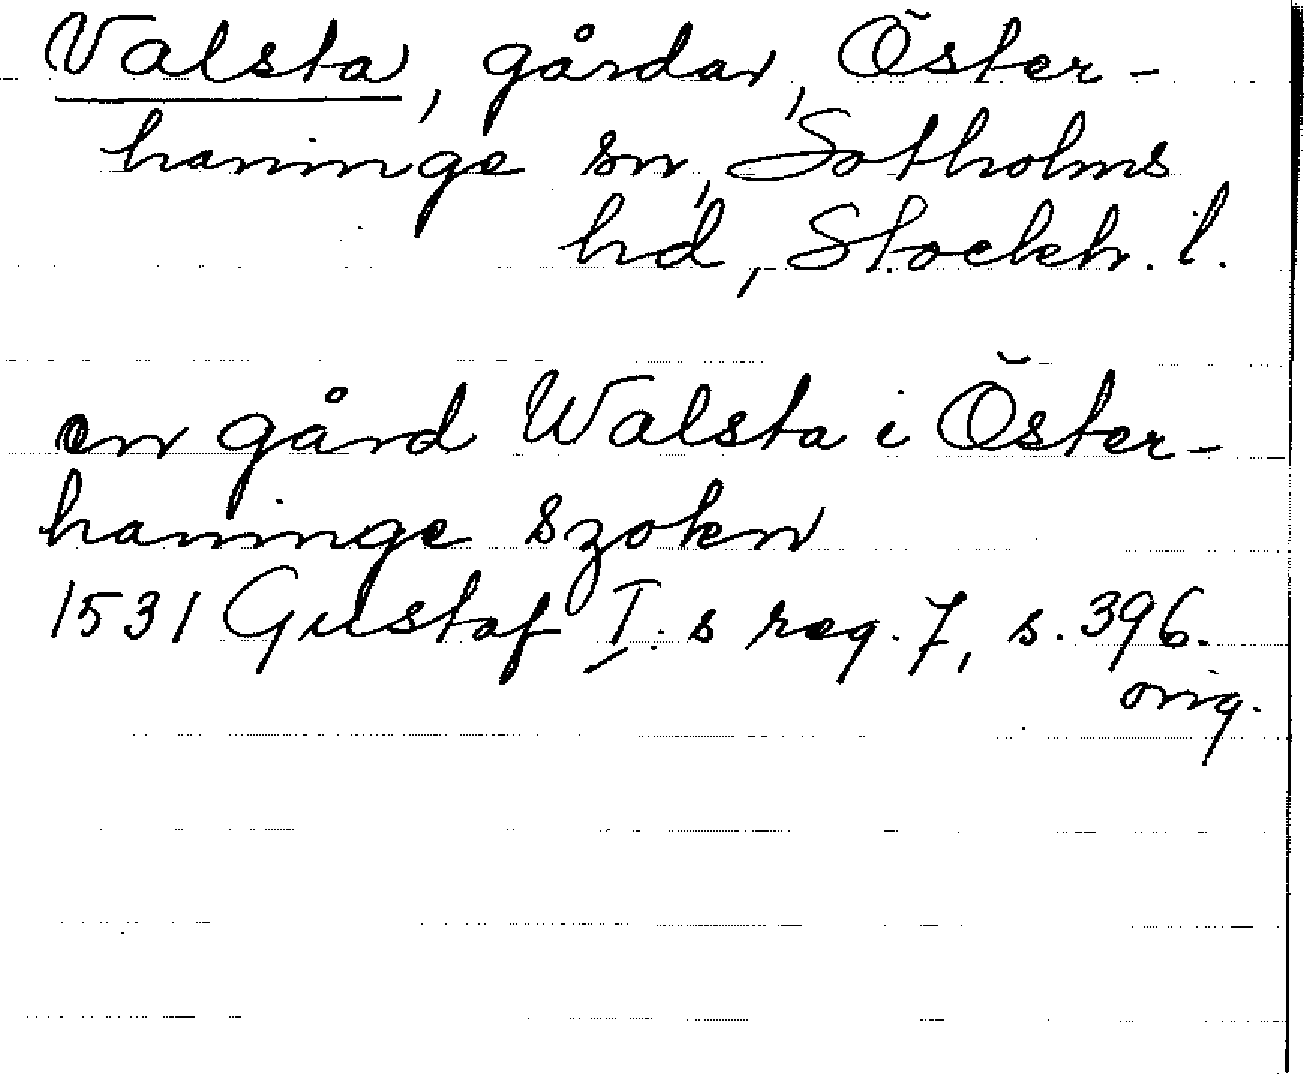 Valsta, gårdar, Öster-
haninge sn, Sotholms
hd, Stockh. l.
en gård Walsta i Öster-
haninge szokn
1531 Gustaf I.s reg. 7, s. 396.
orig.